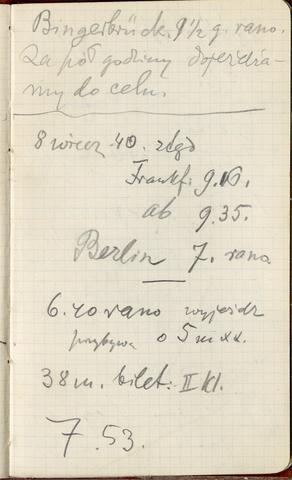 Bingerbrück. 9 1/2 g. rano.
Za pół godziny dojeżdża-
my do celu.
8 wiecz 40.
Frankf. 9.16.
ab 9.35.
Berlin 7. rano
6.40 rano wyjazd
przybywa o 5 m xx.
38 m. bilet: II kl.
7.53.